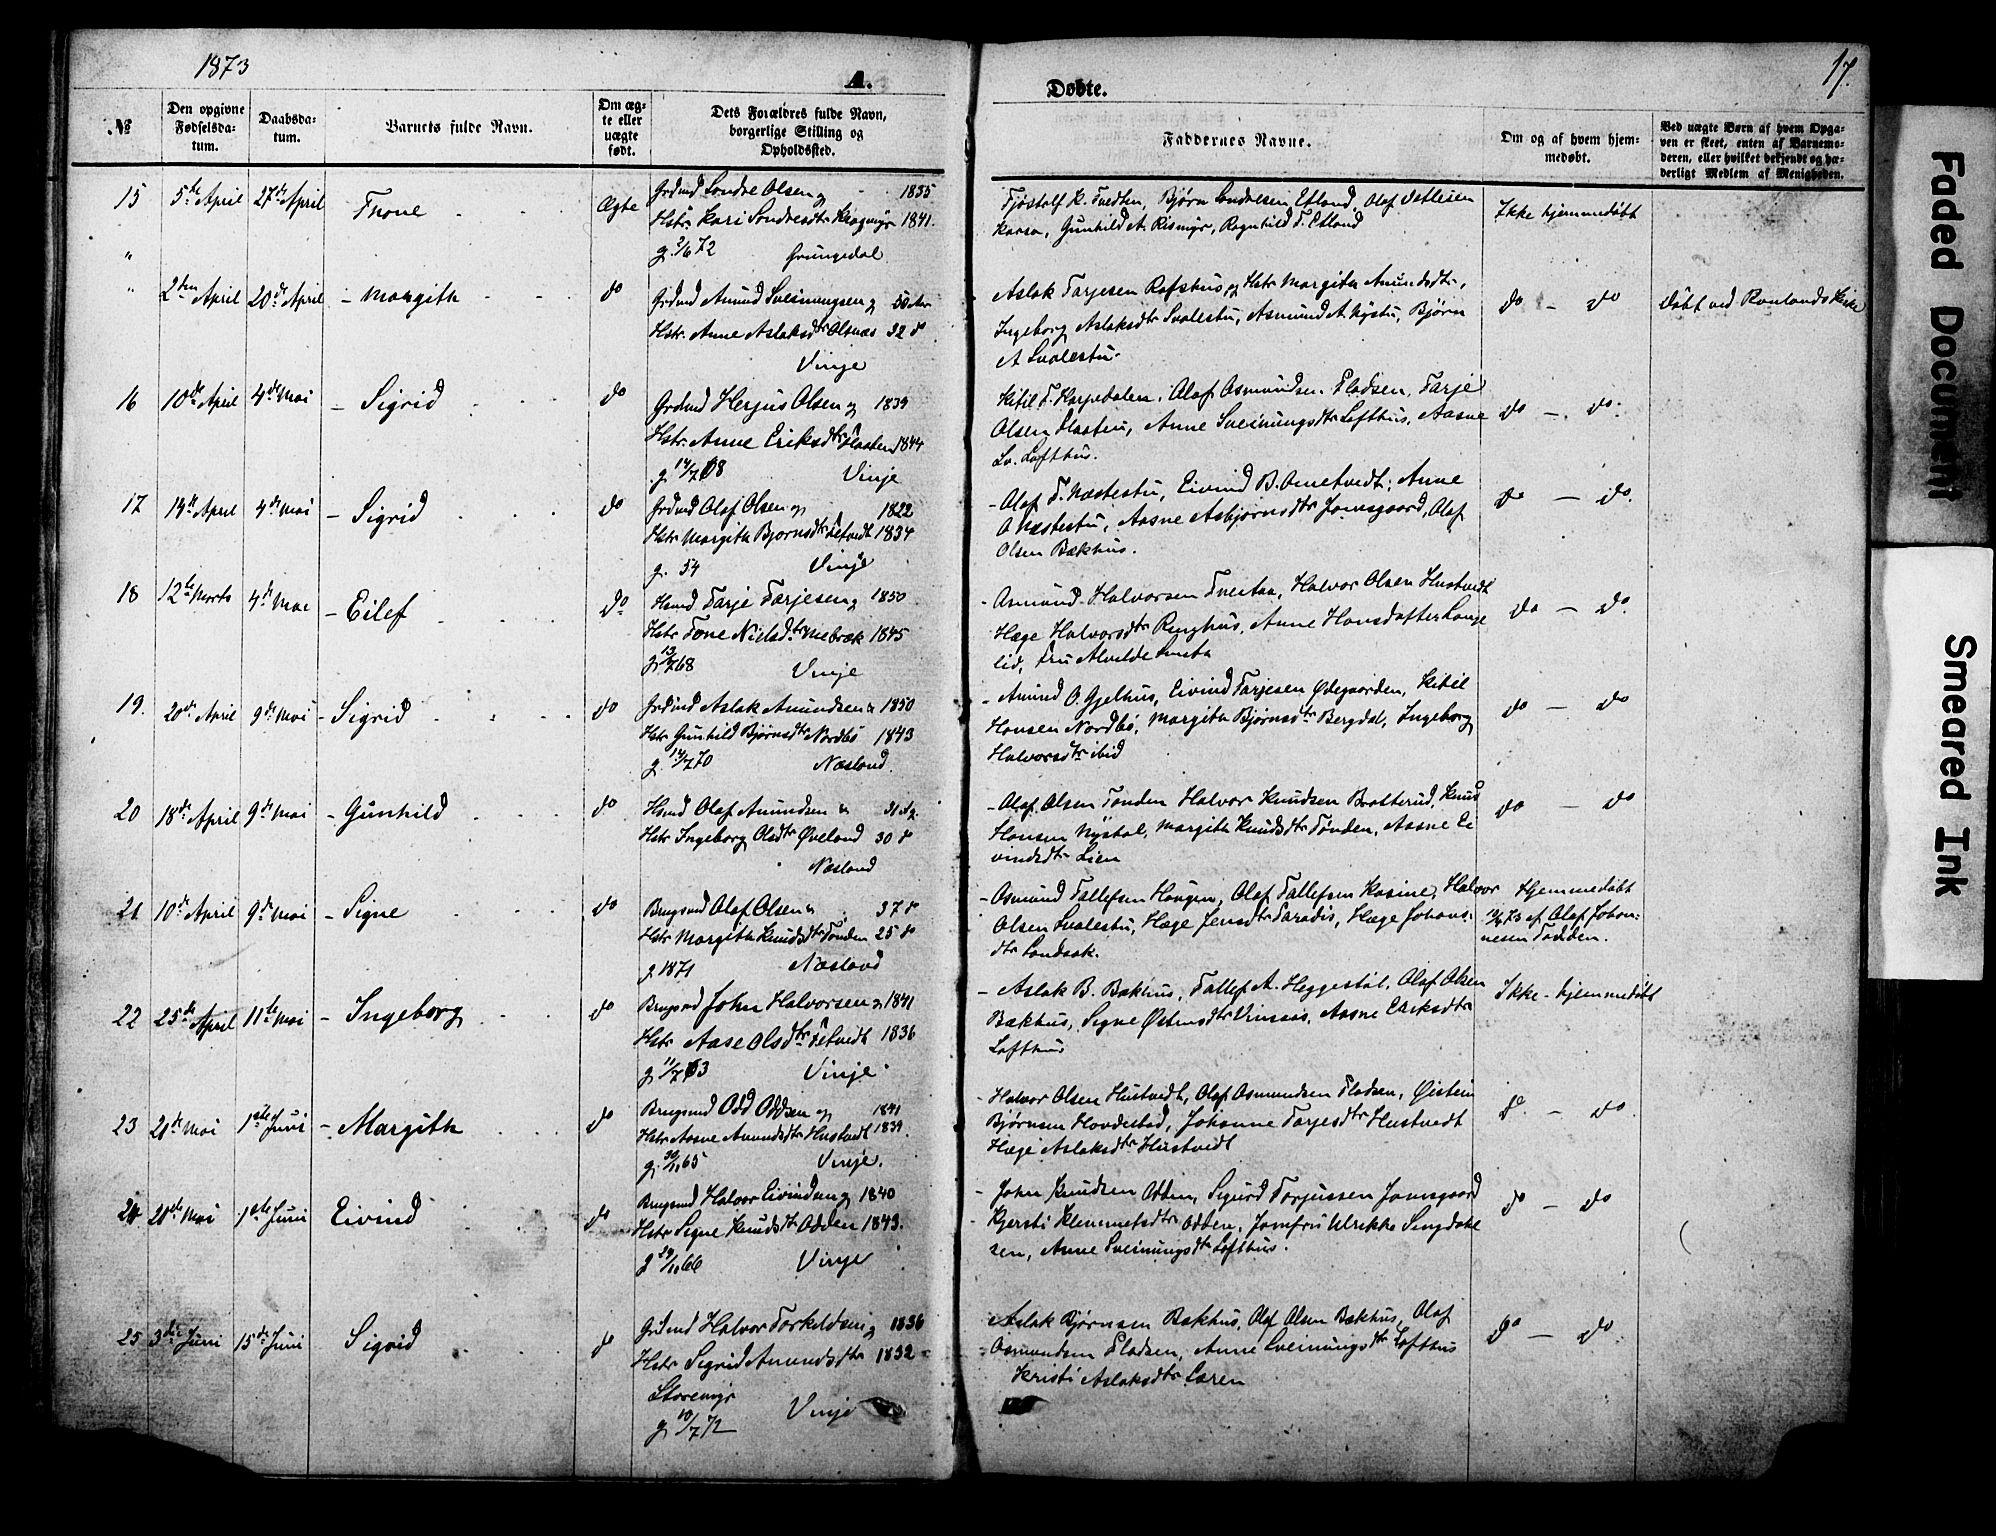 1873
A.
Døbte.
17.
№
Den opgivne Fødselsdatum.
Daabsdatum.
Barnets fulde Navn.
Om ægte eller uægte født.
Dets Forældres fulde Navn, borgerlige Stilling og Opholdssted.
Faddernes Navne.
Om og af hvem hjemmedøbt.
Ved uægte Børn af hvem Opgaven er skeet, enten af Barnemoderen, eller hvilket bekjendt og hæderligt Medlem af Menigheden.
15 5te April 27de April Thone Ægte
Grdmd Sondre Olsen og 1835
Hstr. Kari Sondresdtr 1841.
g. 2/6 72 Grungedal
Fjøstolf K. Tvedten, Bjørn Sondresen Edland, Olaf Detlefsen
Gunhild A. Rismyr, Ragnhild T. Edland
Ikke hjemmedøbt
" 2den April 20de April - Margith do
Grdmd Amund Sveinungsen og 50 Aar
Hstr. Anne Aslaksdtr 32 do
Vinje
Aslak Tarjesen Rofshus og Hstr Margith Amundsdtr,
Ingeborg Aslaksdtr Svalestu, Asmund A. Nystu, Bjørn
A Svalestu.
do - do
Døbt ved Raulands Kirke
16 10de April 4de Mai - Sigrid do
Grdmd Herjus Olsen og 1839
Hstr. Anne Eriksdtr Flaaten 1844
g. 14/7 68 Vinje
Kitil T. Harpedalen, Olaf Osmundsen Pladsen, Tarje
Olsen Flaaten, Anne Sveinungsdtr Lofthus, Aasne
Sv. Lofthus.
do - do.
17 14de April 4de Mai - Sigrid do
Grdmd Olaf Olsen og 1822
Hstr Margith Bjørnsdtr 1834
g. 54 Vinje
- Olaf T. Næstestu, Eivind B. Ometvedt, Anne
O Næstestu, Aasne Asbjørnsdtr Jamsgaard, Olaf
Olsen Bækhus.
do - do.
18 12te Marts 4de Mai - Eilef do
Hsmd Tarje Tarjesen og 1850
Hstr Tone Nielsdtr Midbræk 1845
g. 13/7 68 Vinje
- Osmund Halvorsen Tveitaa, Halvor Olsen Hustvedt
Hæge Halvorsdtr Ringhus, Anne Hansdatter Lange
lid, Fru Alvilde Smith
do - do.
19. 20de April 9de Mai - Sigrid do
Grdmd Aslak Amundsen og 1850
Hstr Gunhild Bjørnsdtr Nordbø 1843
g. 14/7 70 Næsland.
- Amund O. Gjelhus, Eivind Tarjesen Ødegaarden, Kitil
Hansen Nordbø, Margith Bjørnsdtr Bergdal, Ingeborg
Halvorsdtr ibid
do - do
20 18de April 9de Mai - Gunhild do
Hsmd Olaf Amundsen og 31 A.
Hstr Ingeborg Olsdtr Øveland 30 do
Næsland
- Olaf Olsen Tønden Halvor Knudsen Bratterud, Knud
Hansen Nystøl, Margith Knudsdtr Tønden, Aasne Ei
vindsdtr Lien
do - do
21 10de April 9de Mai - Signe do
Brugsmd Olaf Olsen og 37 do
Hstr Margith Knudsdtr Tønden 25 do
g. 1871 Næsland
- Osmund Tallefsen Haugen, Olaf Tallefsen Kasine, Halvor
Olsen Svalestu, Hæge Jensdtr Paradis, Hæge Johans-
dtr Sandsak.
Hjemmedøbt
af Olaf Johan-
nesen Tødden.
22 25de April 11te Mai - Ingeborg do
Brugsmd John Halvorsen og 1841
Hstr Aase Olsdtr 1836
g. 11/7 63 Vinje.
- Aslak B. Bækhus, Tallef A. Heggestøl, Olaf Olsen
Bækhus, Signe Østensdtr Vinsaas, Aasne Eriksdtr
Lofthus
Ikke - hjemmedøbt
23 21de Mai 1ste Juni - Margith do
Brugsmd Odd Oddsen og 1841
Hstr Aasne Amundsdtr Hustvedt 1839.
g. 30/11 65 Vinje.
- Halvor Olsen Hustvedt, Olaf Osmundsen Pladsen, Øistein
Bjørnsen Hovdestad, Johanne Tarjesdtr Hustvedt
Hæge Aslaksdtr Hustvedt
do - do.
24 21de Mai 1ste Juni Eivind do
Brugsmd Halvor Eivindsen og 1840
Hstr Signe Knudsdtr Odden 1843.
g 29/11 66 Vinje
- John Knudsen Odden, Sigurd Torjussen Jamsgaard
Kjersti Klemmetsdtr Odden, Jomfru Ulrikke Singdahl
sen, Anne Sveinungsdtr Lofthus.
do - do
25 3die Juni 15de Juni Sigrid do
Grdmd Halvor Torkildsen og 1836
Hstr Sigrid Amundsdtr 1832
Storemyr
g. 10/7 72 Vinje
Aslak Bjørnsen Bækhus, Olaf Olsen Bækhus, Olaf
Osmundsen Pladsen, Anne Sveinungsdtr Lofthus
Kristi Aslaksdtr Særen
do - do
Faded Document
Smeared Ink